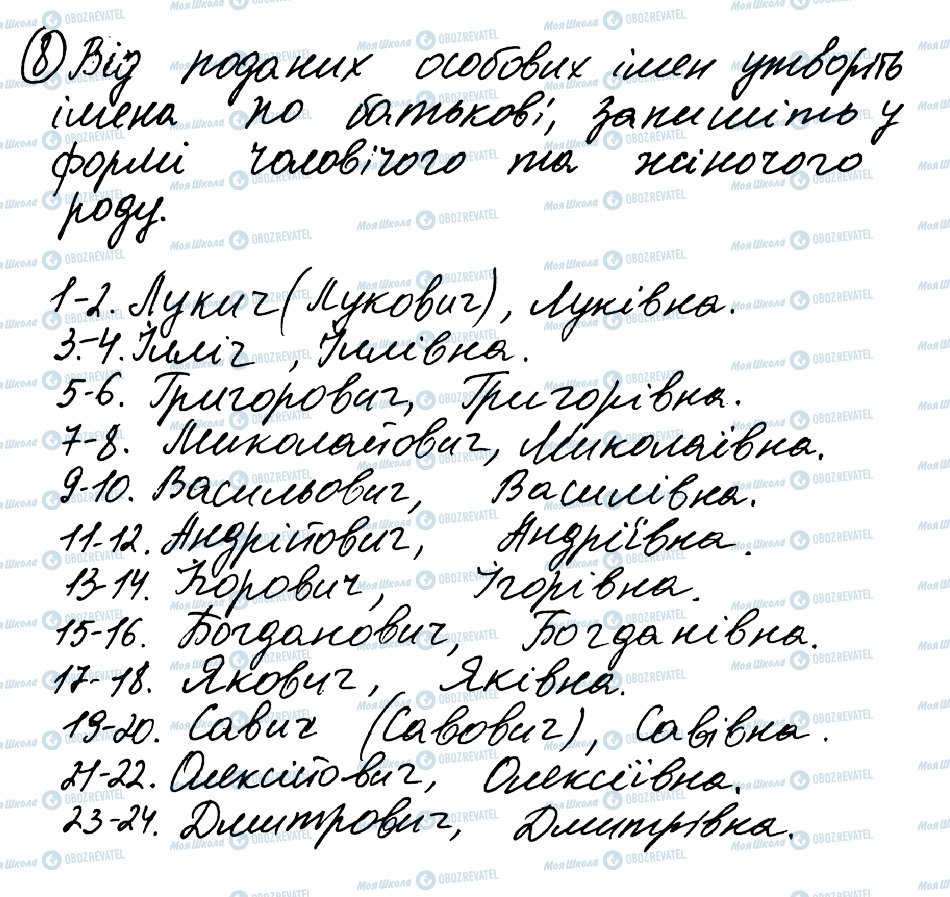 8 Від поданих особових імен утворіть
імена по батькові, запишіть у
формі чоловічого та жіночого
роду.
1-2. Лукич (Лукович), Луківна.
3-4. Ілліч, Іллівна.
5-6. Григорович, Григорівна.
7-8. Миколайович, Миколаївна.
9-10. Васильович, Василівна.
11-12. Андрійович, Андріївна.
13-14. Ігорович, Ігорівна.
15-16. Богданович, Богданівна.
17-18. Якович, Яківна.
19-20. Савич (Савович), Савівна.
21-22. Олексійович, Олексіївна.
23-24. Дмитрович, Дмитрівна.